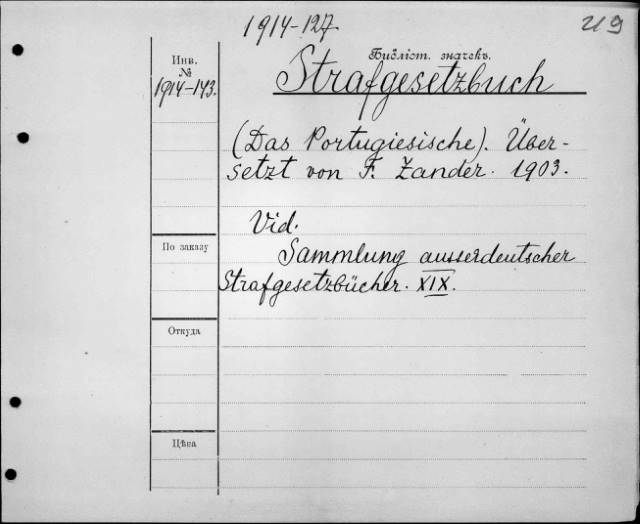 1914-127.
219
Инв.
№
1914-143.
Библіот. значекъ.
Strafgesetzbuch
(Das Portugiesische). Über-
setzt von F. Zander. 1903.
Vid.
По заказу
Sammlung ausserdeutscher
Strafgesetzbücher. XIX.
Откуда
Цѣна